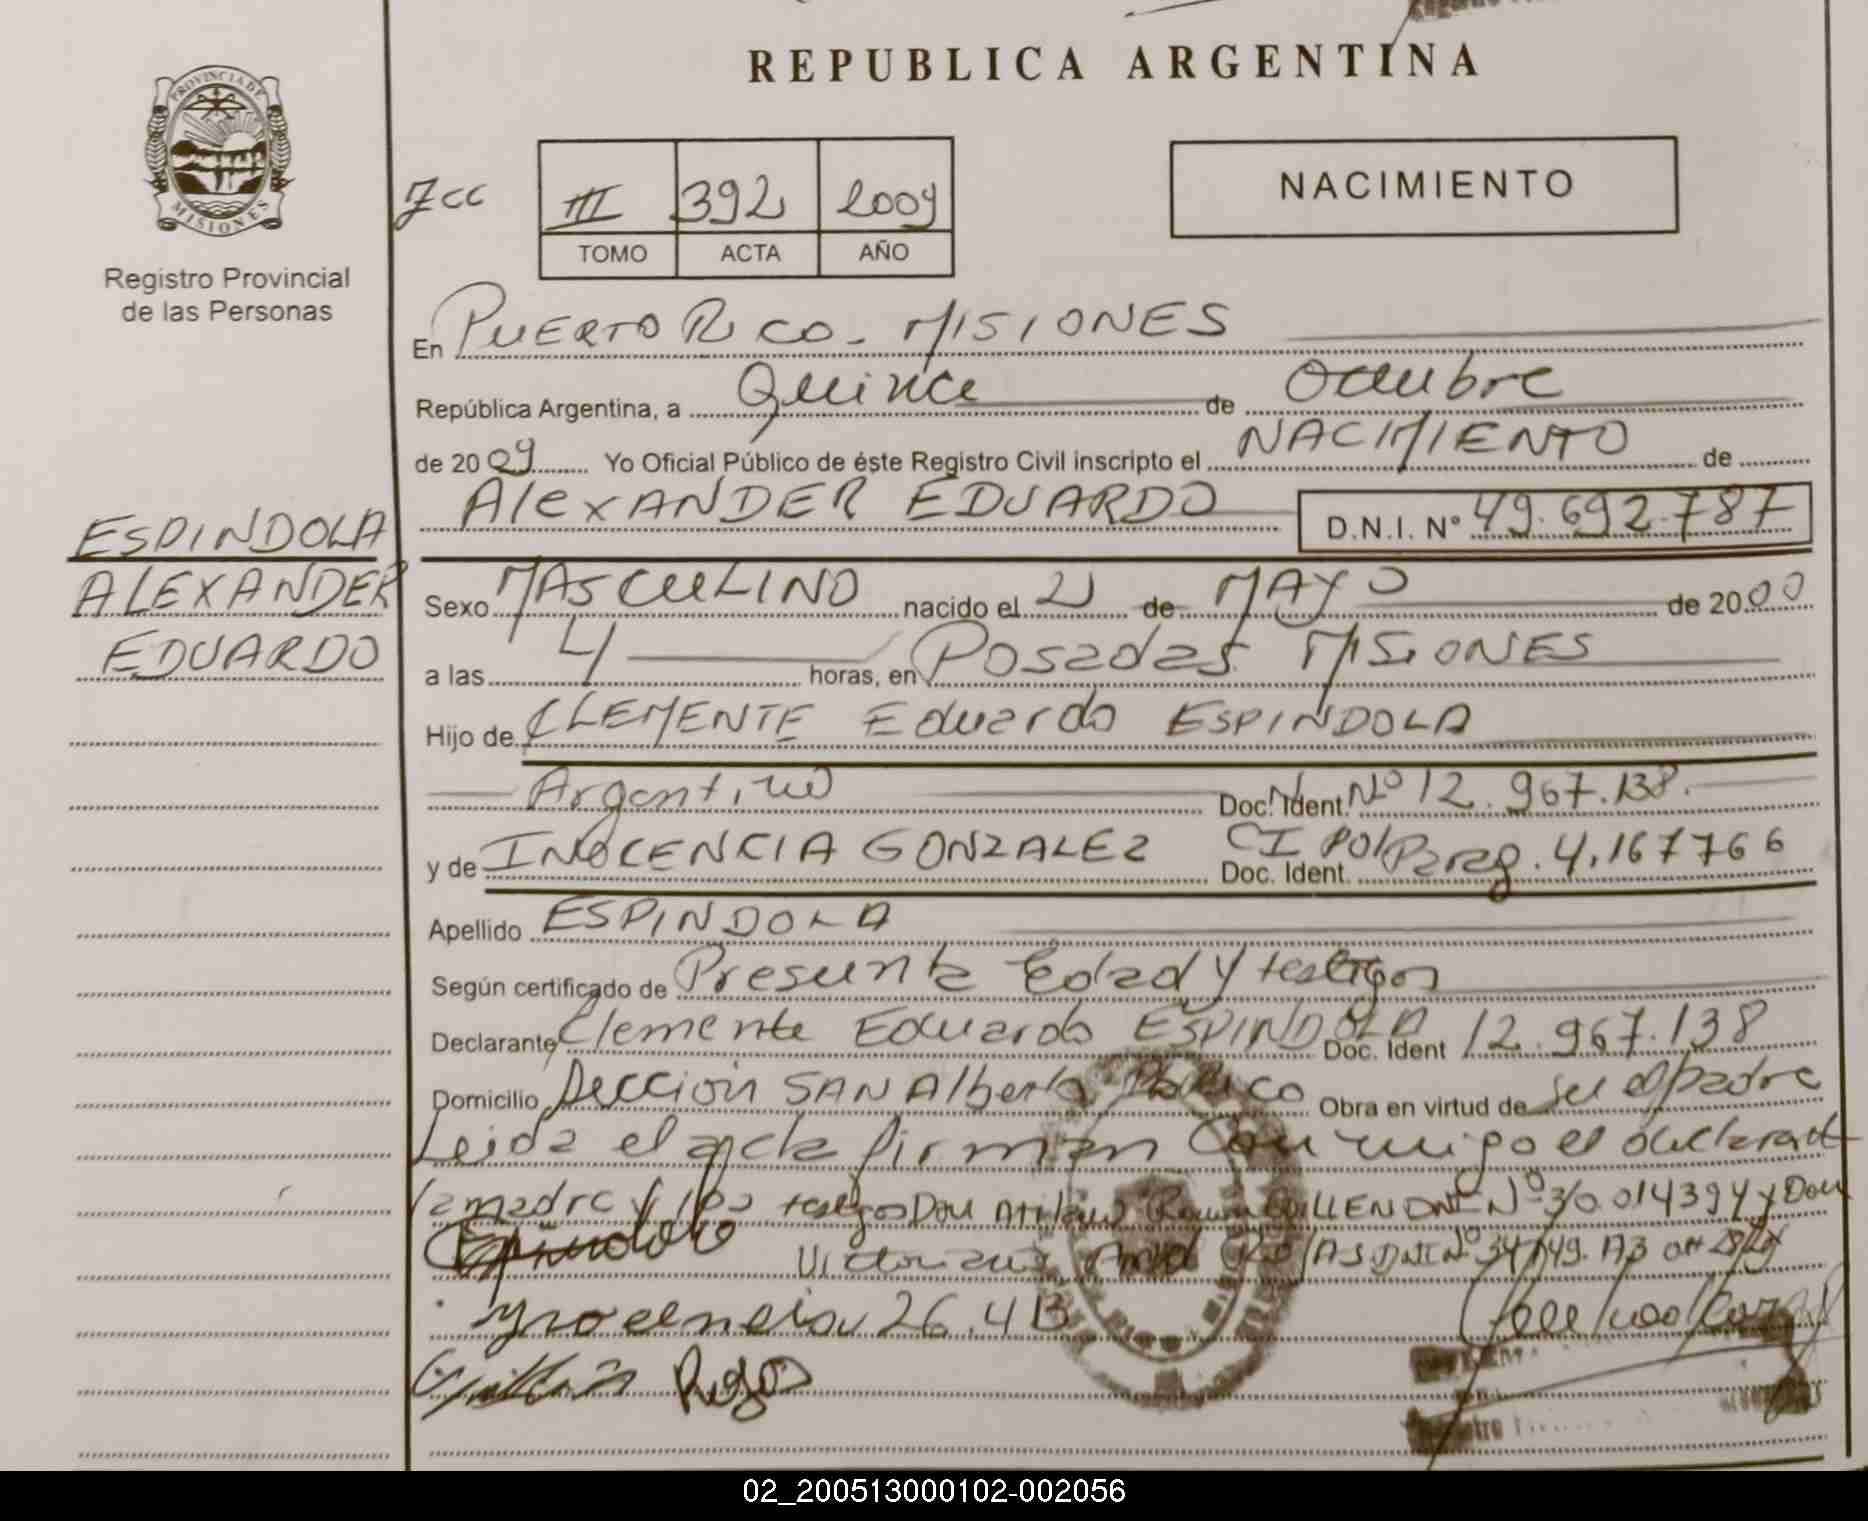 REPUBLICA ARGENTINA
PROVINCIA DE
MISIONES
Registro Provincial
de las Personas
III 392 2009
TOMO ACTA AÑO
NACIMIENTO
En PUERTO RICO - MISIONES
República Argentina, a Quince de Octubre
de 2009 Yo Oficial Público de éste Registro Civil inscripto el NACIMIENTO de
ALEXANDER EDUARDO D.N.I. Nº 49.692.787
ESPINDOLA
ALEXANDER
EDUARDO
Sexo MASCULINO nacido el de MAYO de 2000
a las 4 horas, en Posadas MISIONES
Hijo de CLEMENTE Eduardo ESPINDOLA
Argentino Doc. Ident. Nº 12.967.138.
y de INOCENCIA GONZALEZ Doc. Ident. CI POL Parag. 4,167766
Apellido ESPINDOLA
Según certificado de Presunta Edad y testigos
Declarante Clemente Eduardo ESPINDOLA Doc. Ident 12.967.138
Domicilio Sección SAN Alberto Obra en virtud de ser el padre
Leida el acta firman conmigo el declarant
la madre y los testigos Don GUILLEN DNI Nº y Don
Rojas
02_200513000102-002056